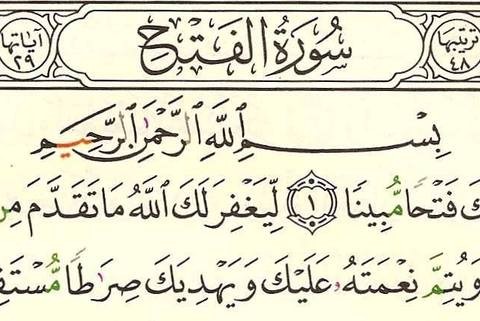 ترتيبها ٤٨ سُورَةُ الفَتْحِ آياتها ٢٩
بِسْمِ ٱللَّهِ ٱلرَّحْمَٰنِ ٱلرَّحِيمِ
كَ فَتْحًا مُّبِينًا ١ لِّيَغْفِرَ لَكَ ٱللَّهُ مَا تَقَدَّمَ مِن
وَيُتِمَّ نِعْمَتَهُۥ عَلَيْكَ وَيَهْدِيَكَ صِرَٰطًا مُّسْتَقِ